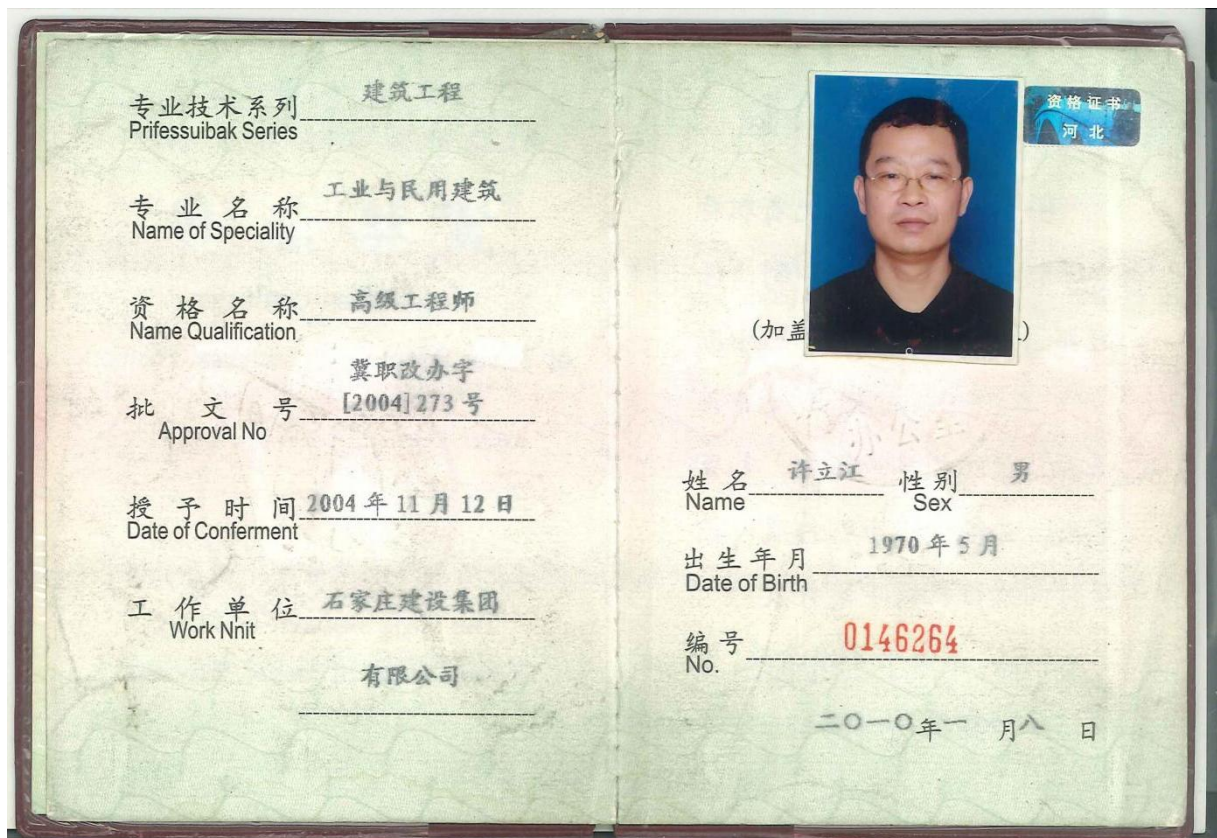 专业技术系列 建筑工程
Prifessuibak Series
专业名称 工业与民用建筑
Name of Speciality
资格名称 高级工程师
Name Qualification
冀职改办字
批文号 [2004]273号
Approval No
授予时间 2004年11月12日
Date of Conferment
工作单位 石家庄建设集团
Work Nnit
有限公司
资格证书
河北
(加盖 )
姓名 许立江 性别 男
Name Sex
出生年月 1970年5月
Date of Birth
编号 0146264
No.
二〇一〇年一月八日